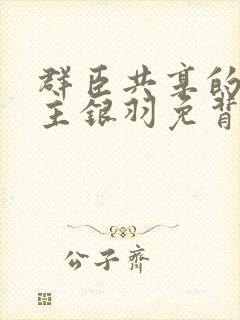 群臣共享的
主银羽免背
公子齊